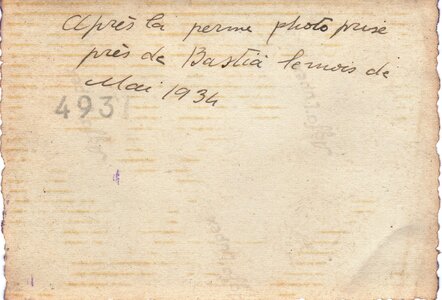 Après la perme photo prise
près de Bastia le mois de
Mai 1934
4937